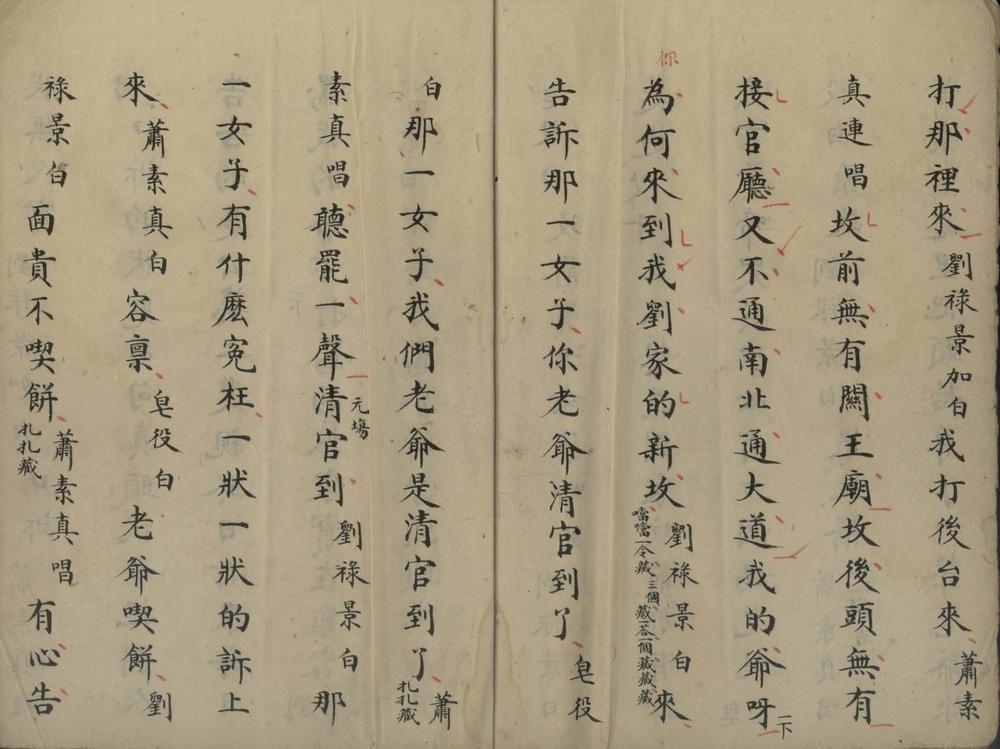 打那裡來劉祿景加白我打後台來蕭素
真連唱坟前無有關王廟坟後頭無有
接官廳又不通南北通大道我的爺呀一下
你
為何來到我劉家的新坟噹噹一令藏三個藏答一個藏藏藏劉祿景白來
告訴那一女子你老爺清官到了皂役
白那一女子我們老爺是清官到了扎扎藏蕭
素真唱聽罷一聲清官到元塲劉祿景白那
一女子有什麽寃枉一狀一狀的訴上
來蕭素真白容禀皂役白老爺喫餅劉
祿景白面貴不喫餅扎扎藏蕭素真唱有心告